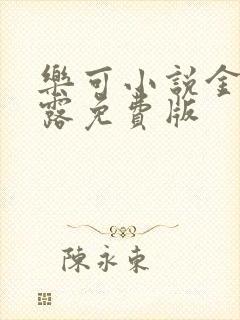 樂可小說金
露免費版
陳永東